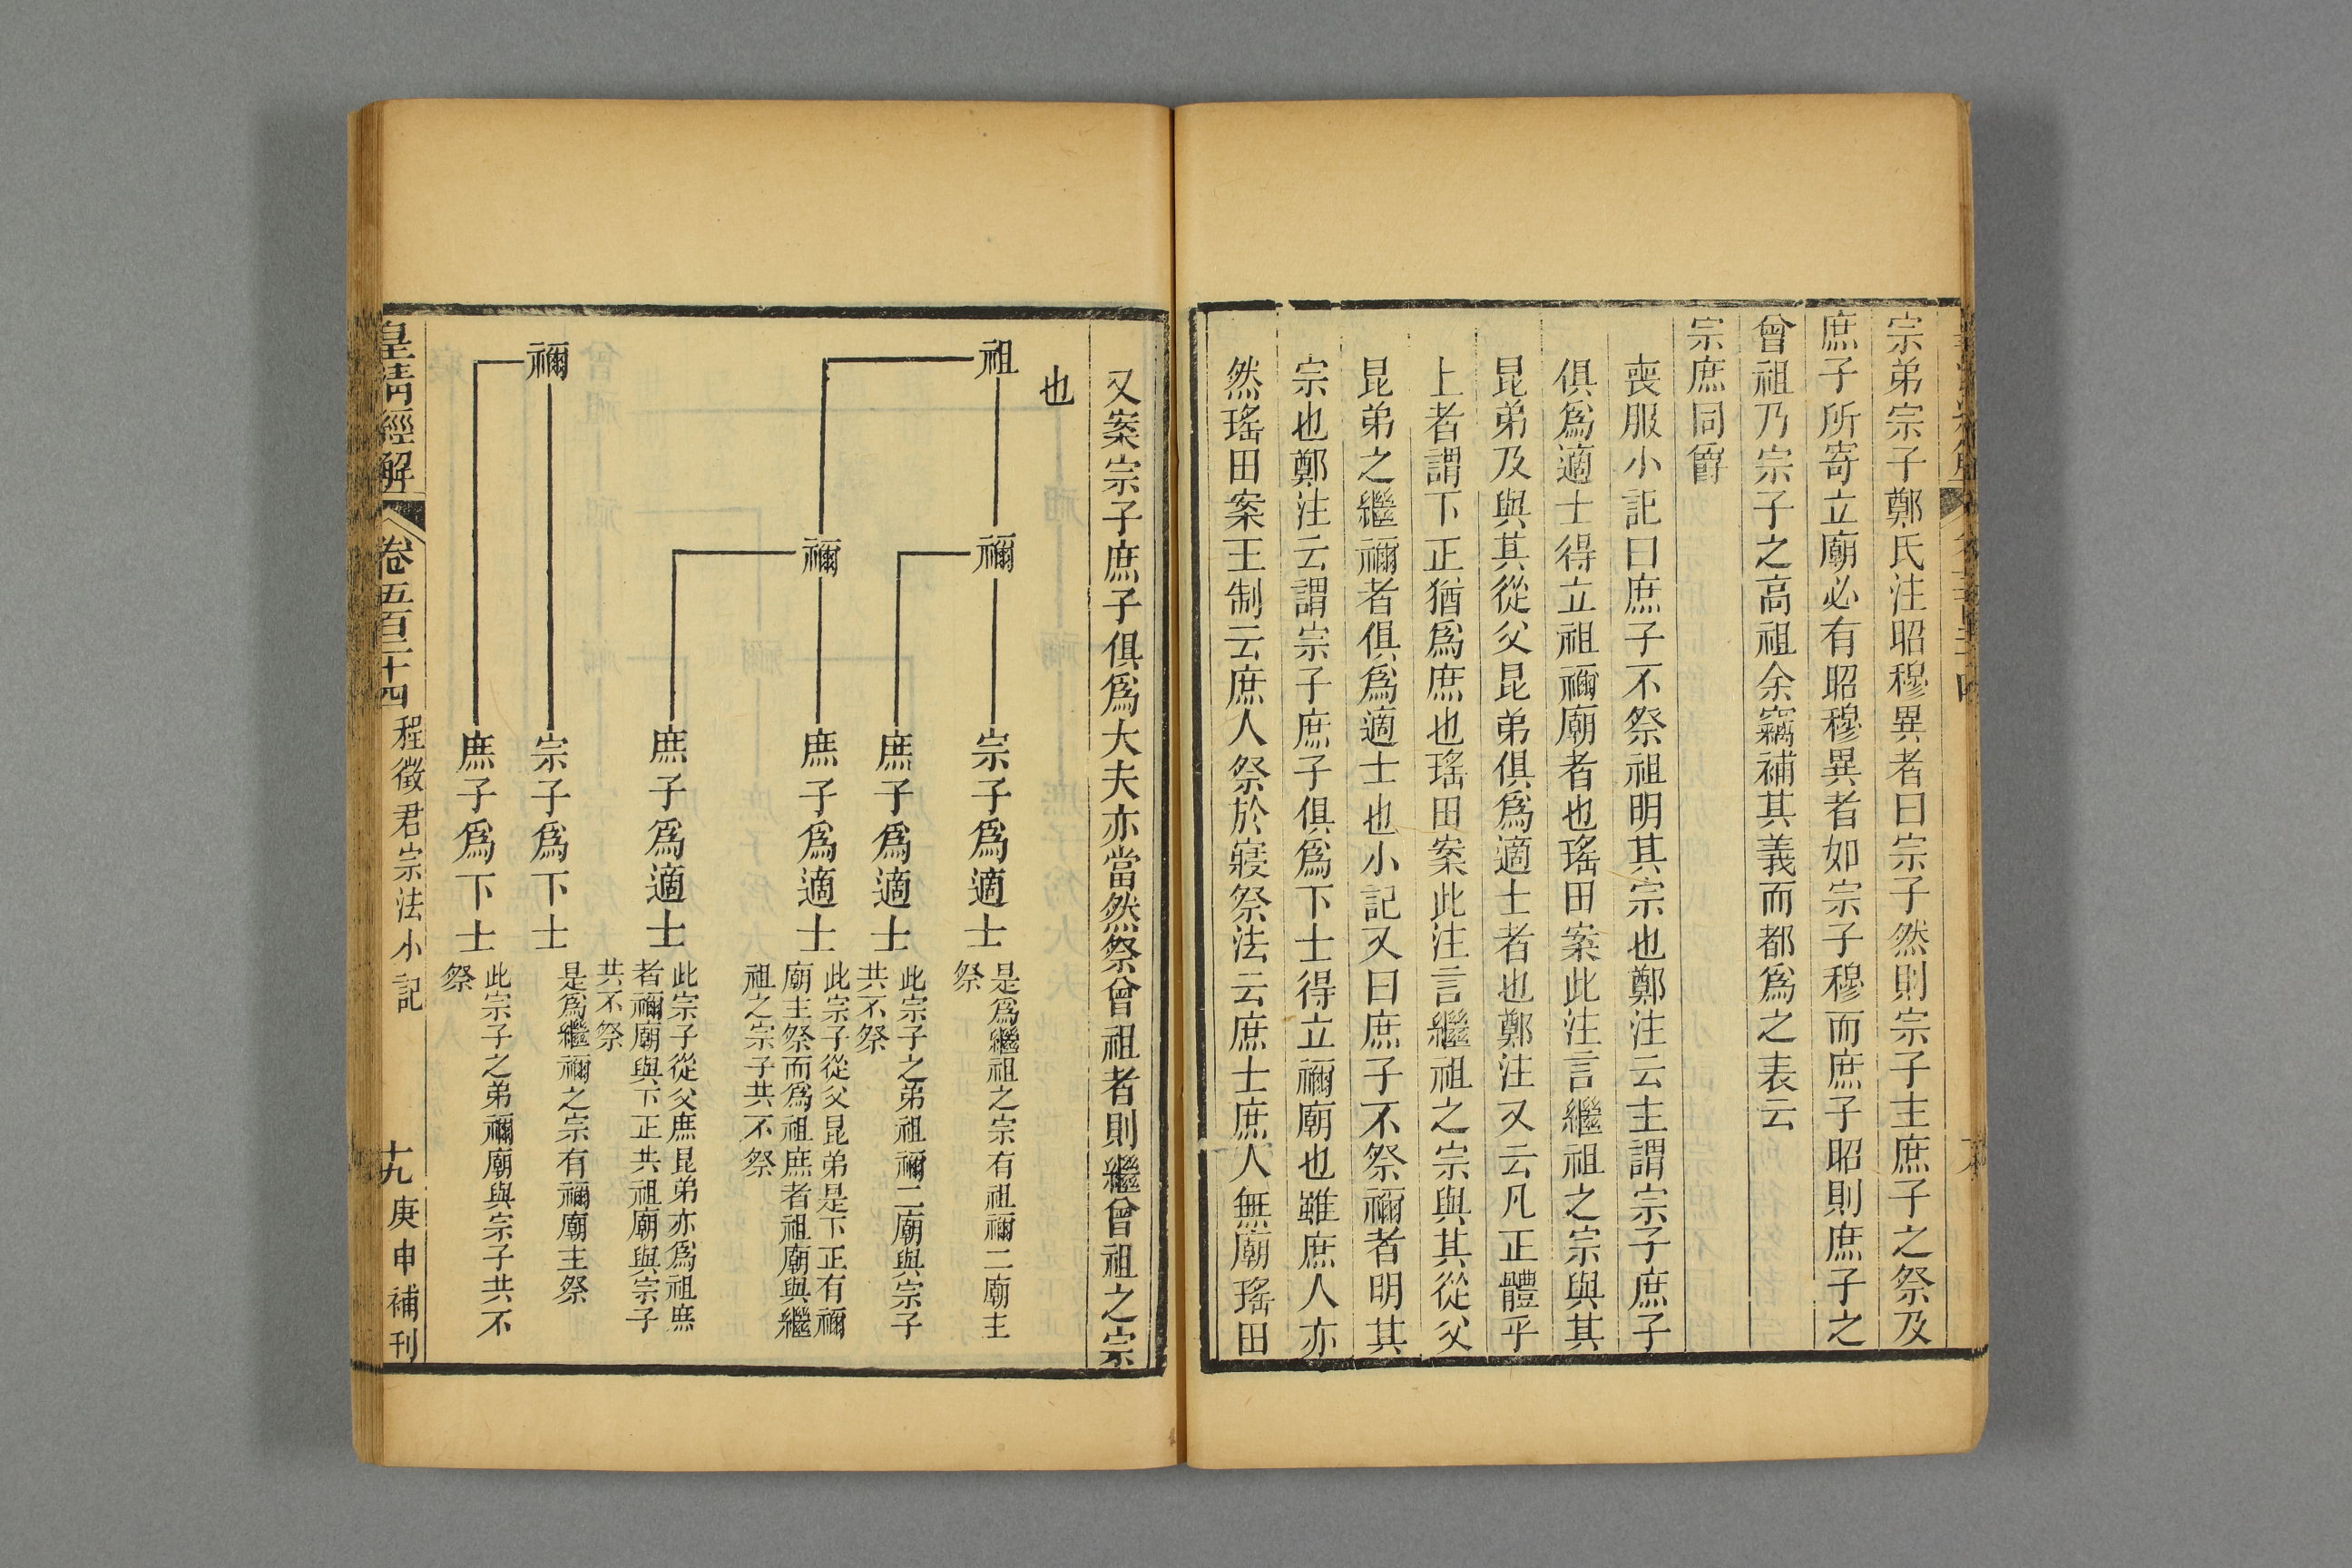 宗弟宗子鄭氏注昭穆異者曰宗子然則宗子主庶子之祭及
庶子所寄立廟必有昭穆異者如宗子穆而庶子昭則庶子之
曾祖乃宗子之高祖余竊補其義而都爲之表云
宗庶同爵
喪服小記曰庶子不祭祖明其宗也鄭注云主謂宗子庶子
俱爲適士得立祖禰廟者也瑤田案此注言繼祖之宗與其
昆弟及與其從父昆弟俱爲適士者也鄭注又云凡正體乎
上者謂下正猶爲庶也瑤田案此注言繼祖之宗與其從父
昆弟之繼禰者俱爲適士也小記又曰庶子不祭禰者明其
宗也鄭注云謂宗子庶子俱爲下士得立禰廟也雖庶人亦
然瑤田案王制云庶人祭於寢祭法云庶士庶人無廟瑤田
又案宗子庶子俱爲大夫亦當然祭曾祖者則繼曾祖之宗
也
祖
禰
宗子爲適士
是爲繼祖之宗有祖禰二廟主
祭
庶子爲適士
此宗子之弟祖禰二廟與宗子
共不祭
禰
庶子爲適士
此宗子從父昆弟是下正有禰
廟主祭而爲祖庶者祖廟與繼
祖之宗子共不祭
庶子爲適士
此宗子從父庶昆弟亦爲祖庶
者禰廟與下正共祖廟與宗子
共不祭
禰
宗子爲下士
是爲繼禰之宗有禰廟主祭
庶子爲下士
此宗子之弟禰廟與宗子共不
祭
皇清經解
卷五百二十四
程徵君宗法小記
十九
庚申補刊